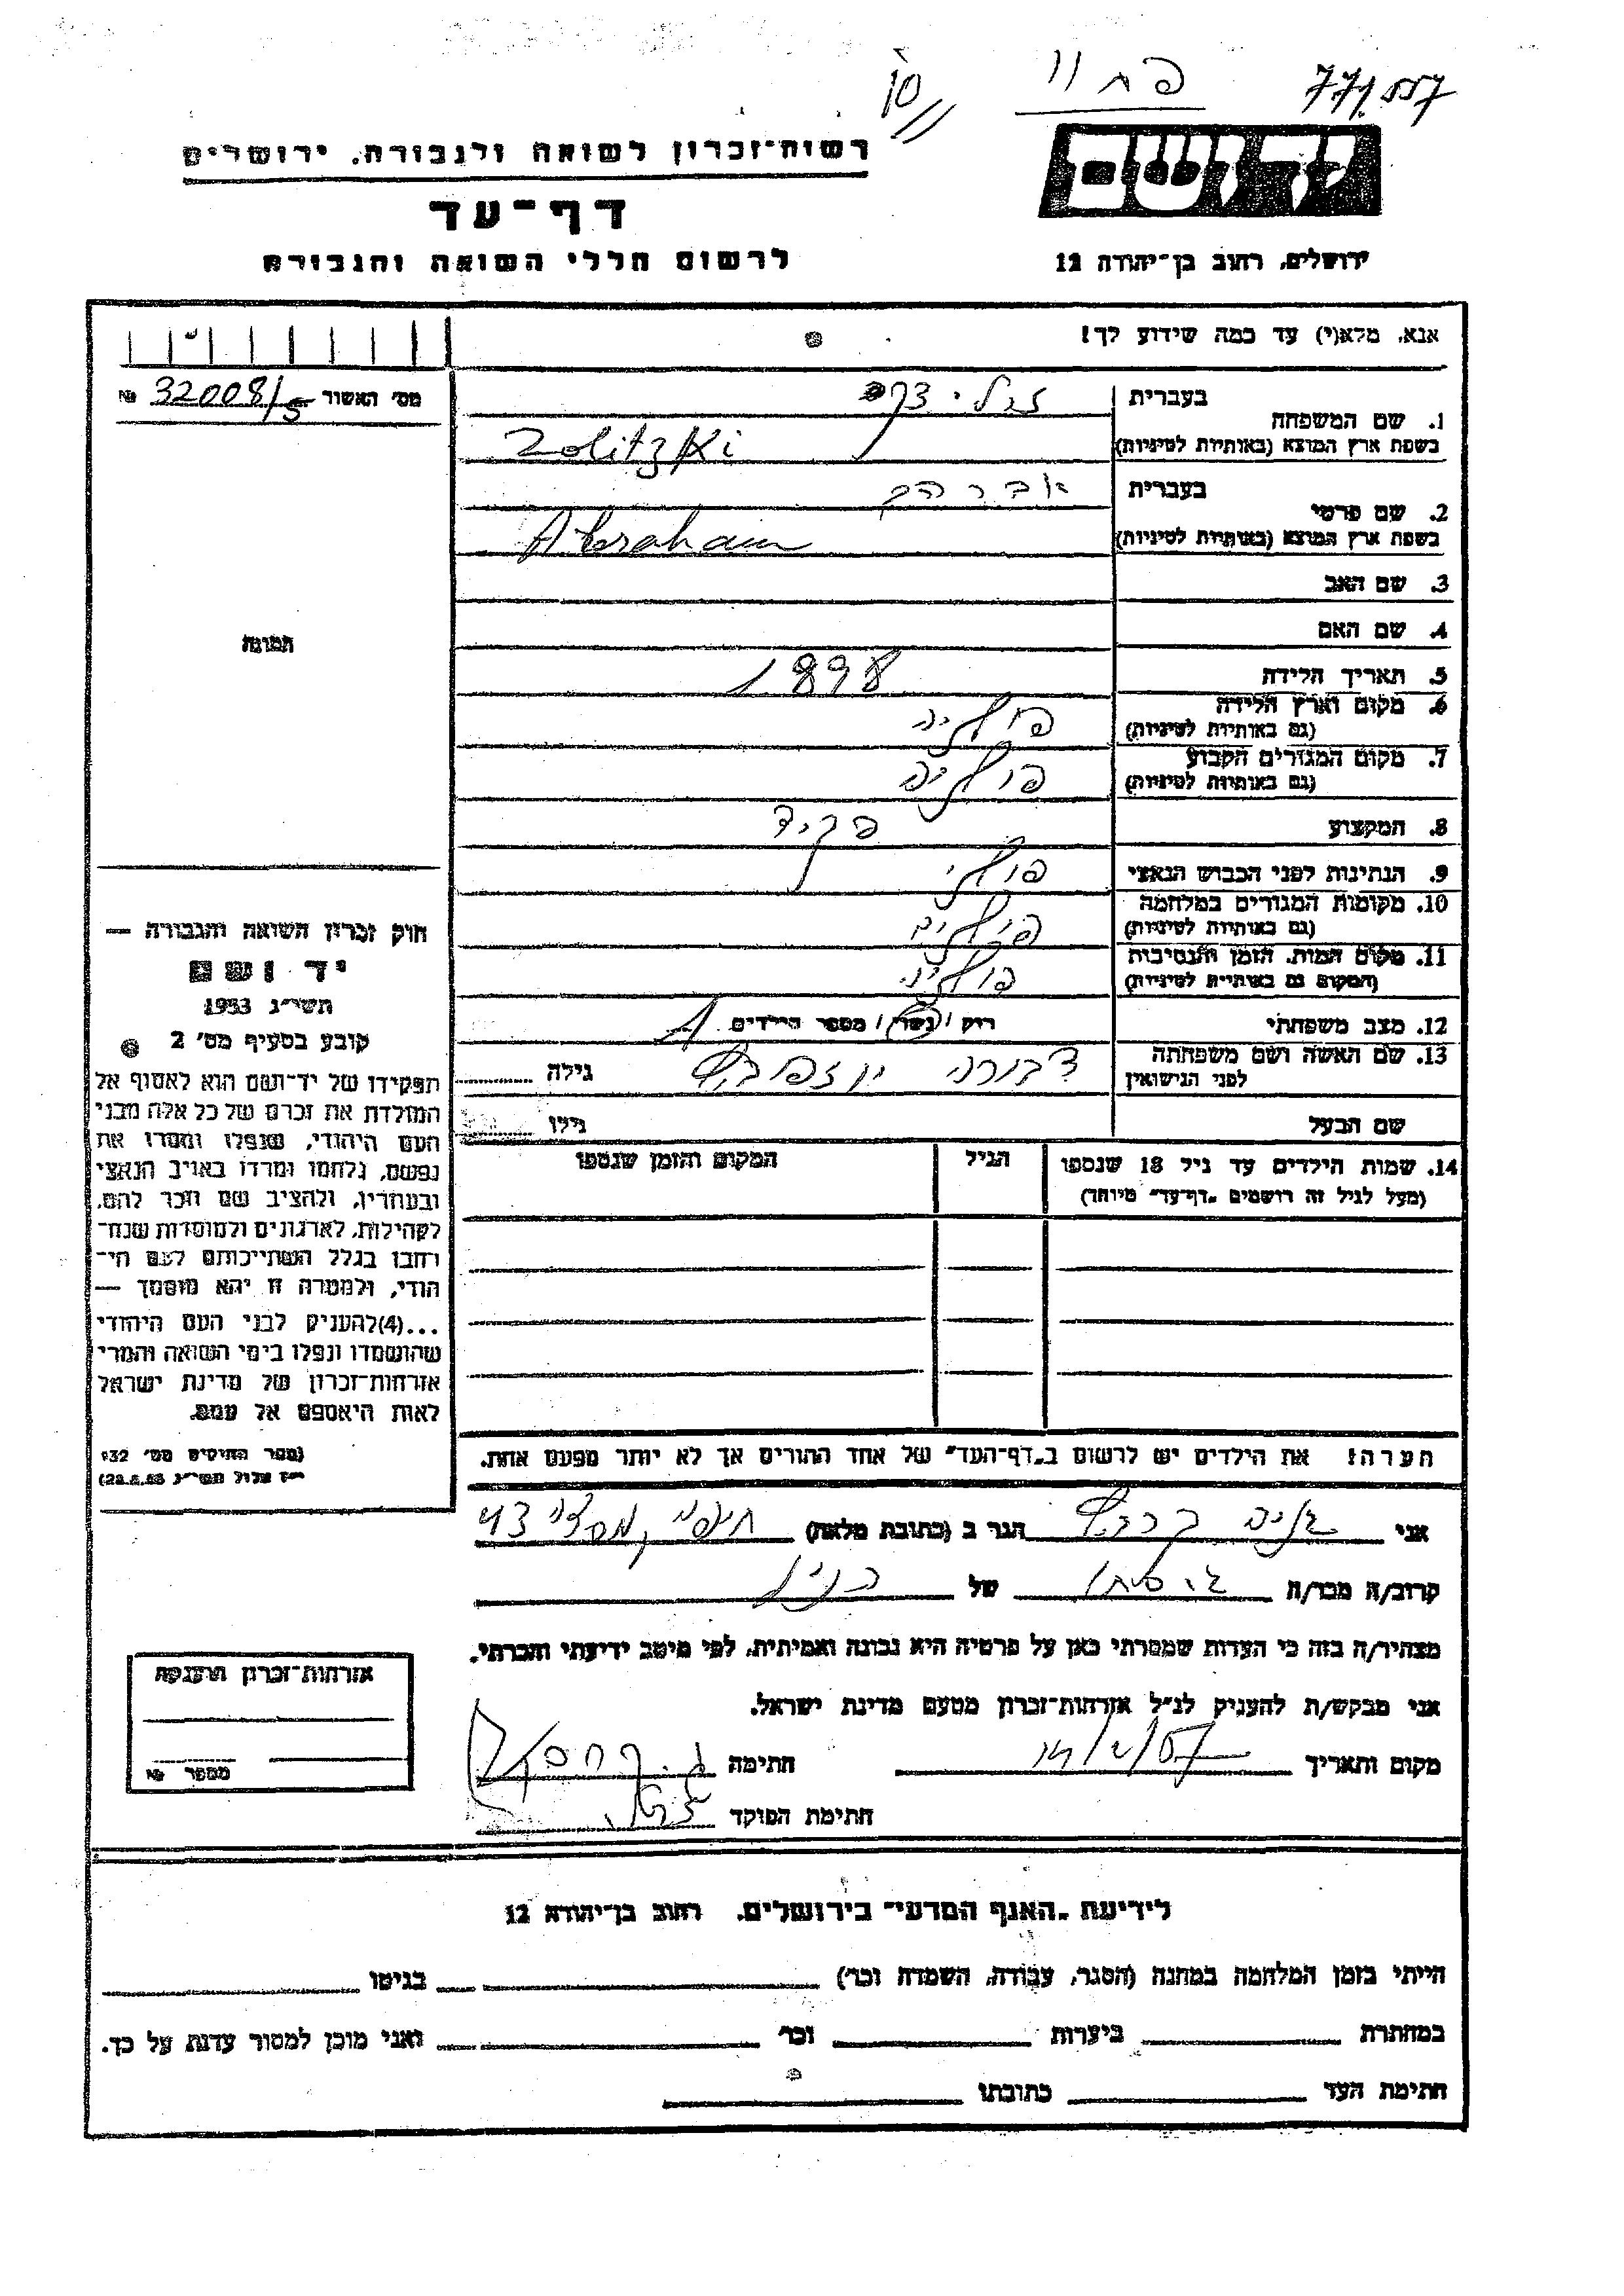 771.557
10
יד ושם
רשות־זכרון לשואה ולגבורה. ירושלים
דף־עד
ירושלים, רחוב בן־יהודה 12
לרשום חללי השואה והגבורה
אנא, מלא(י) עד כמה שידוע לך!
מס׳ האשור 32008/5 №
1. שם המשפחה
בעברית
בשפת ארץ המוצא (באותיות לטיניות) Zolitzki
2. שם פרטי
בעברית אברהם
בשפת ארץ המוצא (באותיות לטיניות) Abraham
3. שם האב
4. שם האם
תמונה
5. תאריך הלידה 1898
6. מקום וארץ הלידה פולניה
(גם באותיות לטיניות)
7. מקום המגורים הקבוע פולניה
(גם באותיות לטיניות)
8. המקצוע פקיד
9. הנתינות לפני הכבוש הנאצי פולני
10. מקומות המגורים במלחמה פולניה
(גם באותיות לטיניות)
11. מקום המות, הזמן והנסיבות פולניה
(המקום גם באותיות לטיניות)
12. מצב משפחתי רווק / נשוי / מספר הילדים
13. שם האשה ושם משפחתה דבורה גילה
לפני הנישואין
שם הבעל גילו
14. שמות הילדים עד גיל 18 שנספו הגיל המקום והזמן שנספו
(מעל לגיל זה רושמים „דף־עד״ מיוחד)
חוק זכרון השואה והגבורה —
יד ושם
תשי״ג 1953
קובע בסעיף מס׳ 2
תפקידו של יד־ושם הוא לאסוף אל
המולדת את זכרם של כל אלה מבני
העם היהודי, שנפלו ומסרו את
נפשם, נלחמו ומרדו באויב הנאצי
ובעוזריו, ולהציב שם וזכר להם,
לקהילות, לארגונים ולמוסדות שנח־
רבו בגלל השתייכותם לעם הי־
הודי, ולמטרה זו יהא מוסמך —
...(4)להעניק לבני העם היהודי
שהושמדו ונפלו בימי השואה והמרי
אזרחות־זכרון של מדינת ישראל
לאות היאספם אל עמם.
(ספר החוקים מס׳ 132
י״ז אלול תשי״ג 28.8.53)
הערה: את הילדים יש לרשום ב„דף־העד״ של אחד ההורים אך לא יותר מפעם אחת.
אני הגר ב (כתובת מלאה) חיפה 43
קרוב/ה מכר/ה של הנ״ל
מצהיר/ה בזה כי העדות שמסרתי כאן על פרטיה היא נכונה ואמיתית, לפי מיטב ידיעתי והכרתי.
אני מבקש/ת להעניק לנ״ל אזרחות־זכרון מטעם מדינת ישראל.
מקום ותאריך 14/2/57 חתימה
חתימת הפוקד
אזרחות־זכרון הוענקה
מספר №
לידיעת „האגף המדעי״ בירושלים, רחוב בן־יהודה 12
הייתי בזמן המלחמה במחנה (הסגר, עבודה, השמדה וכו׳) בגיטו
במחתרת ביערות וכו׳ ואני מוכן למסור עדות על כך.
חתימת העד כתובתו